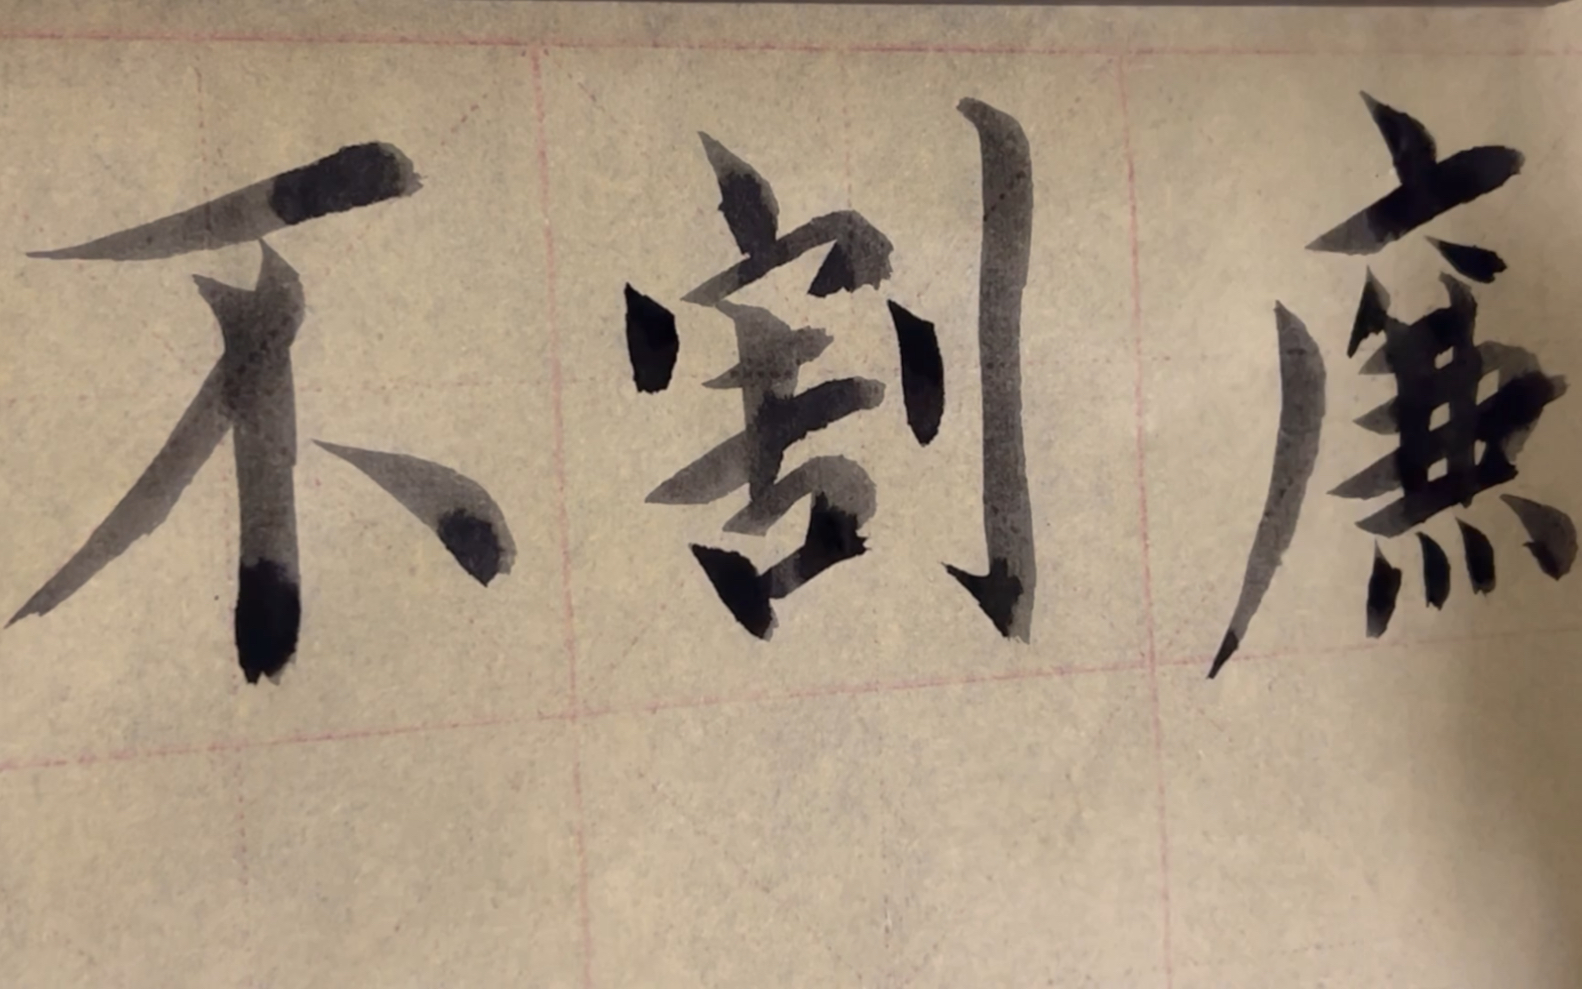 不割廉